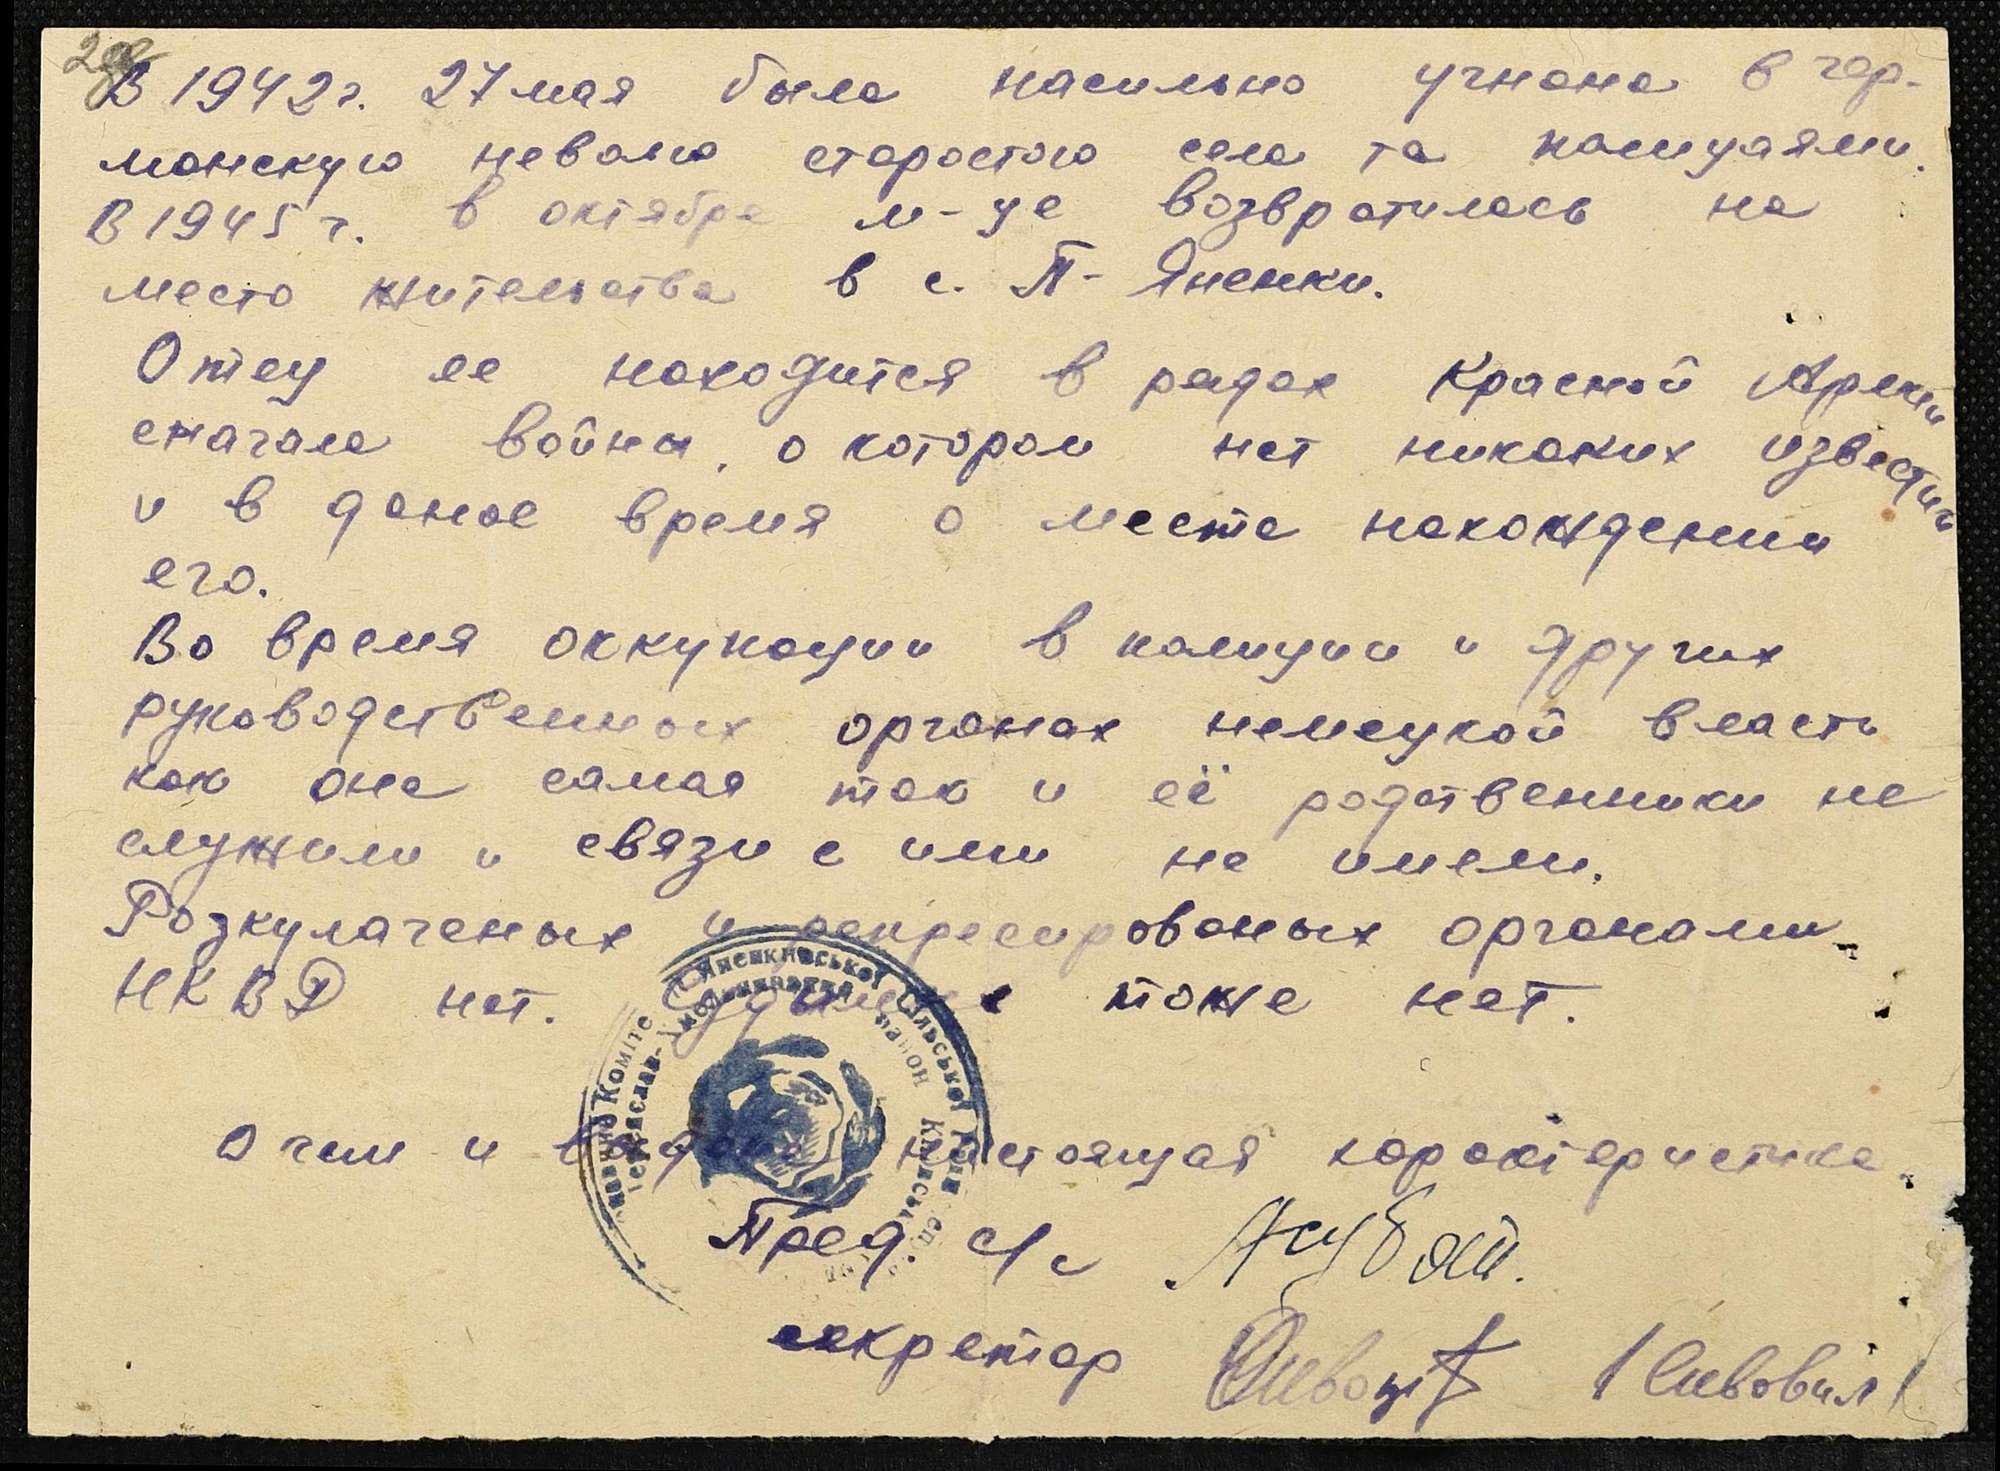 В 1942 г. 27 мая была насильно угнана в гер-
манскую неволю старостою села та полицаями.
В 1945 г. в октябре м-це возвратилась на
место жительства в с. П-Яненки.
Отец ее находится в рядах Красной Армии
сначала войны, о котором нет никаких известий
и в даное время о месте нахождении
его.
Во время оккупации в полиции и других
руководственных органах немецкой власть
как она самая так и её родственники не
служили и связи с ими не имели.
Розкулаченых и репресированых органами
НКВД нет. тоже нет.
О чем и выдана настоящая характеристика.
Пред. с/с
секретар